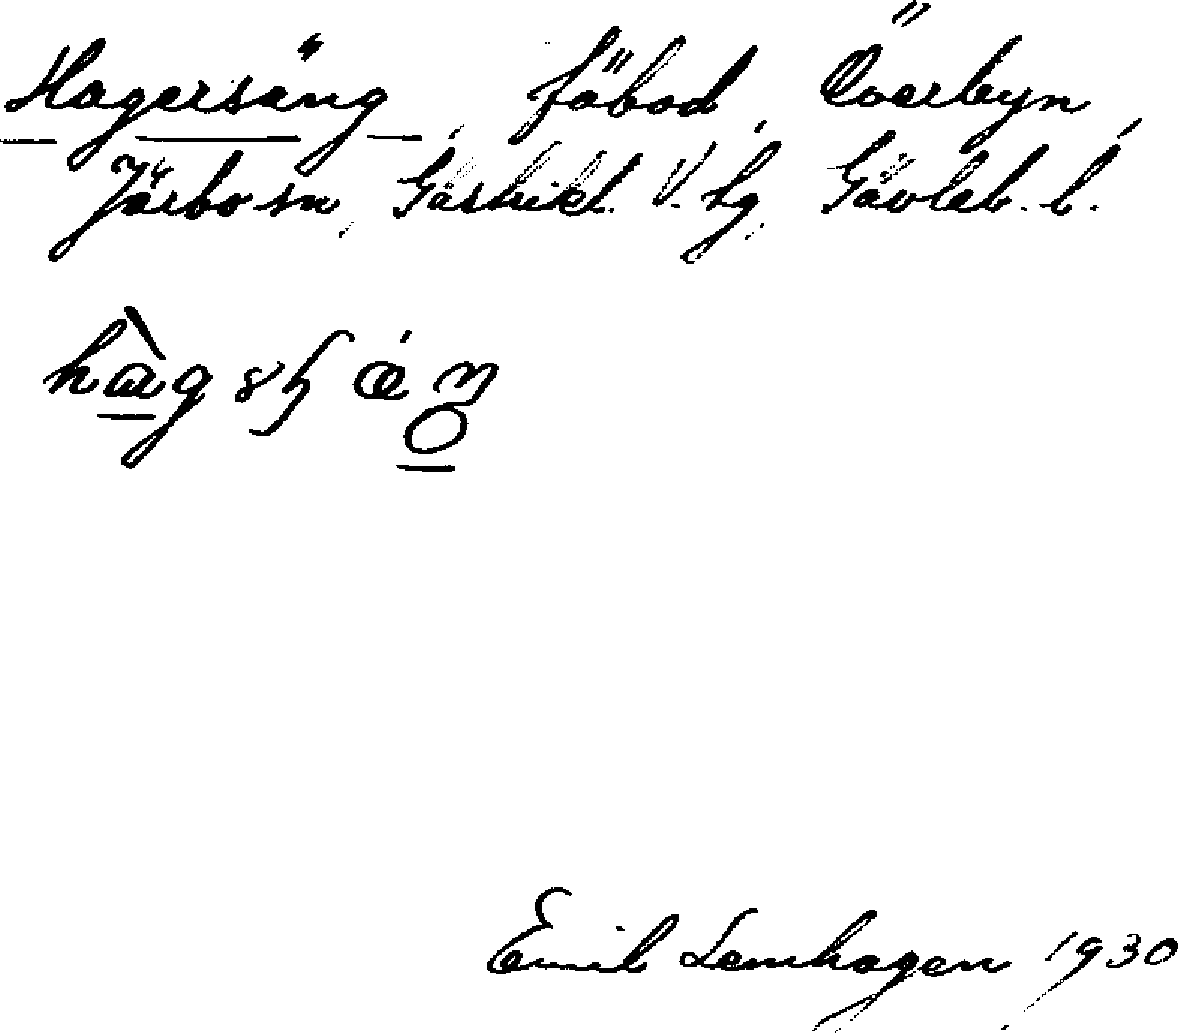 Hagersäng, fäbod, Överbyn,
Järbo sn, Gästrikl. V. hg, Gävleb. l.
Emil Lemhagen 1930